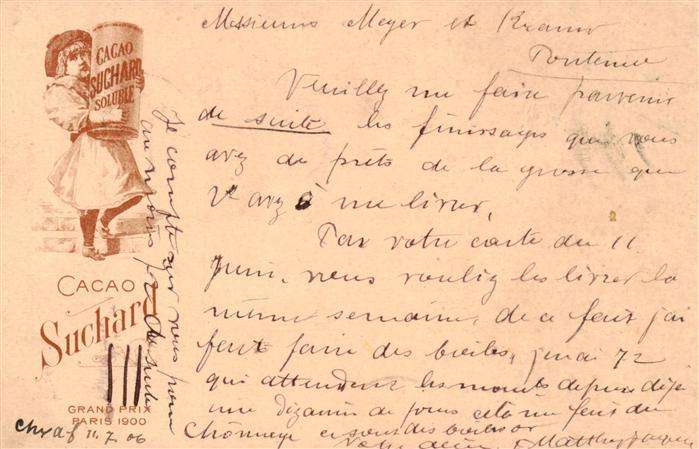 CACAO
SUCHARD
SOLUBLE
CACAO
Suchard
GRAND PRIX
PARIS 1900
11.7.06
Messieurs Meyer et Kramer
Pontenet
Veuillez me faire parvenir
de suite les finissages que vous
avez de prêts de la grosse que
v avez à me livrer,
Par votre carte du 11
Juin, vous vouliez les livrer la
même semaine, de ce fait j'ai
fait faire des boîtes, j'en ai 72
qui attendent les mouvts depuis déjà
une dizaine de jours cela me fait du
chômage et sont des boîtes or
Je compte sur vous pour
au moins